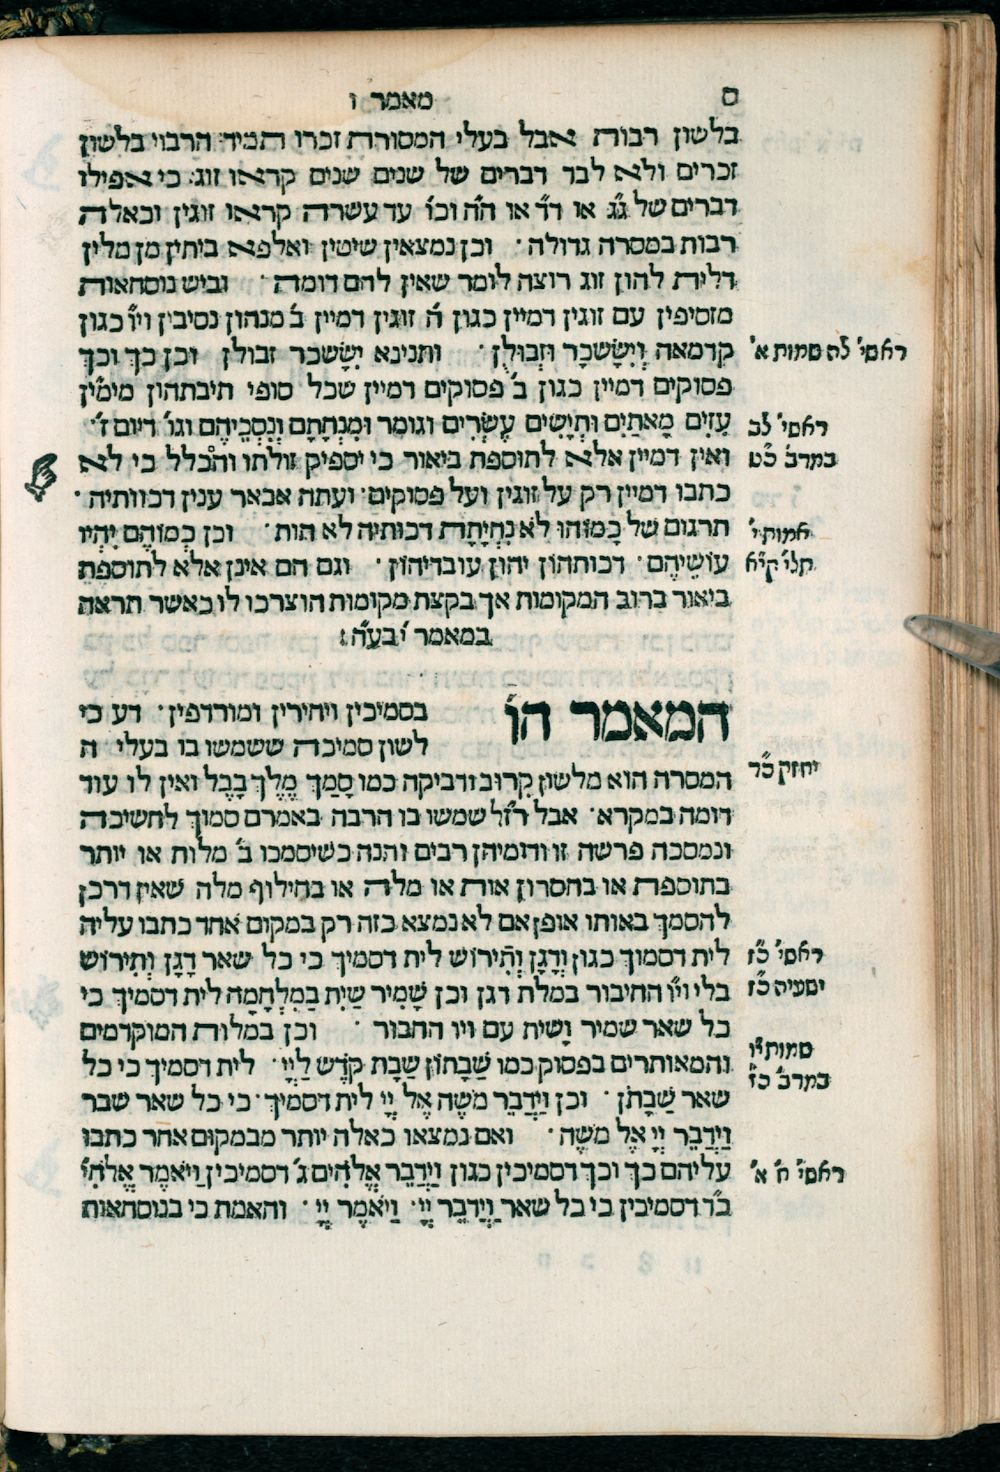 מאמר ו
ס
בלשון רבות אבל בעלי המסורת זכרו תמיד הרבוי בלשון
זכרים ולא לבד דברים של שנים שנים קראו זוג׃ כי אפילו
דברים של ג״ג או ד״ד או ה״ה וכו׳ עד עשרה קראו זוגין וכאלה
רבות במסרה גדולה׳ וכן נמצאין שיטין ואלפא ביתין מן מלין
דלית להון זוג רוצה לומר שאין להם דומה׳ וביש נוסחאות
מוסיפין עם זוגין דמיין כגון ה׳ זוגין דמיין ב׳ מנהון נסיבין וי״ו כגון
קדמאה וְיִשָּׂשכָר וּזְבוּלֻן׳ ותנינא יִשָּׂשכר זבולן וכן כך וכך
פסוקים דמיין כגון ב׳ פסוקים דמיין שכל סופי תיבתהון מימ״ין
עִזִּים מָאתַיִם וּתְיָשִׁים עֶשְׂרִים וגומר ומִנְחָתָם וְנִסְכֵּיהֶם וגו׳ דיום ז׳
ואין דמיין אלא לתוספת ביאור כי יספיק זולתו והכלל כי לא
כתבו דמיין רק על זוגין ועל פסוקים׃ ועתה אבאר ענין דכוותיה׳
תרגום של כָּמוֹהוּ לֹא נִהְיָתָה דכותיה לא הות׳ וכן כְּמוֹהֶם יִהְיוּ
עוֹשֵׂיהֶם׳ דכותהון יהון עובדיהון׳ וגם הם אינן אלא לתוספת
ביאור ברוב המקומות אך בקצת מקומות הוצרכו לו כאשר תראה
במאמר י׳ בע״ה׃
המאמר הו׳ בסמיכין ויחידין ומורדפין׳ דע כי
לשון סמיכה ששמשו בו בעלי ה
המסרה הוא מלשון קרוב ודביקה כמו סָמַךְ מֶלֶךְ בָּבֶל ואין לו עוד
דומה במקרא׳ אבל רז״ל שמשו בו הרבה באמרם סמוך לחשיכה
ונסמכה פרשה זו ודומיהן רבים והנה כשיסמכו ב׳ מלות או יותר
בתוספת או בחסרון אות או מלה או בחילוף מלה שאין דרכן
להסמך באותו אופן אם לא נמצא כזה רק במקום אחד כתבו עליה
לית דסמוך כגון וְדָגָן וְתִירוֹשׁ לית דסמיך כי כל שאר דָגָן וְתִירוֹשׁ
בלי וי״ו החיבור במלת דגן וכן שָׁמִיר שַׁיִת בַּמִלְחָמָה לית דסמיך כי
כל שאר שמיר וָשית עם ויו החבור׳ וכן במלות המוקדמים
והמאוחרים בפסוק כמו שַׁבָּתוֹן שַׁבַּת קֹדֶשׁ לַיְיָ׳ לית דסמיך כי כל
שאר שַׁבָּתֹן׳ וכן וַיְדַבֵּר מֹשֶׁה אֶל יְיָ לית דסמיך׳ כי כל שאר שבר
וַיְדַבֵּר יְיָ אֶל מֹשֶׁה׳ ואם נמצאו כאלה יותר מבמקום אחד כתבו
עליהם כך וכך דסמיכין כגון וַיְדַבֵּר אֱלֹהִים ג׳ דסמיכין וַיֹּאמֶר אֱלֹהִי׳
כ״ד דסמיכין כי כל שאר וַיְדַבֵּר יְיָ׳ וַיֹּאמֶר יְיָ׳ והאמת כי בנוסחאות
ראשי׳ לה שמות א׳
ראשי׳ לב
במדב׳ כ״ט
שמות י׳
תלי׳ קי״א
יחזק כ״ד
ראשי׳ כ״ז
ישעיה כ״ז
שמות י״ו
במדב׳ כז
ראשי׳ ח׳ א׳